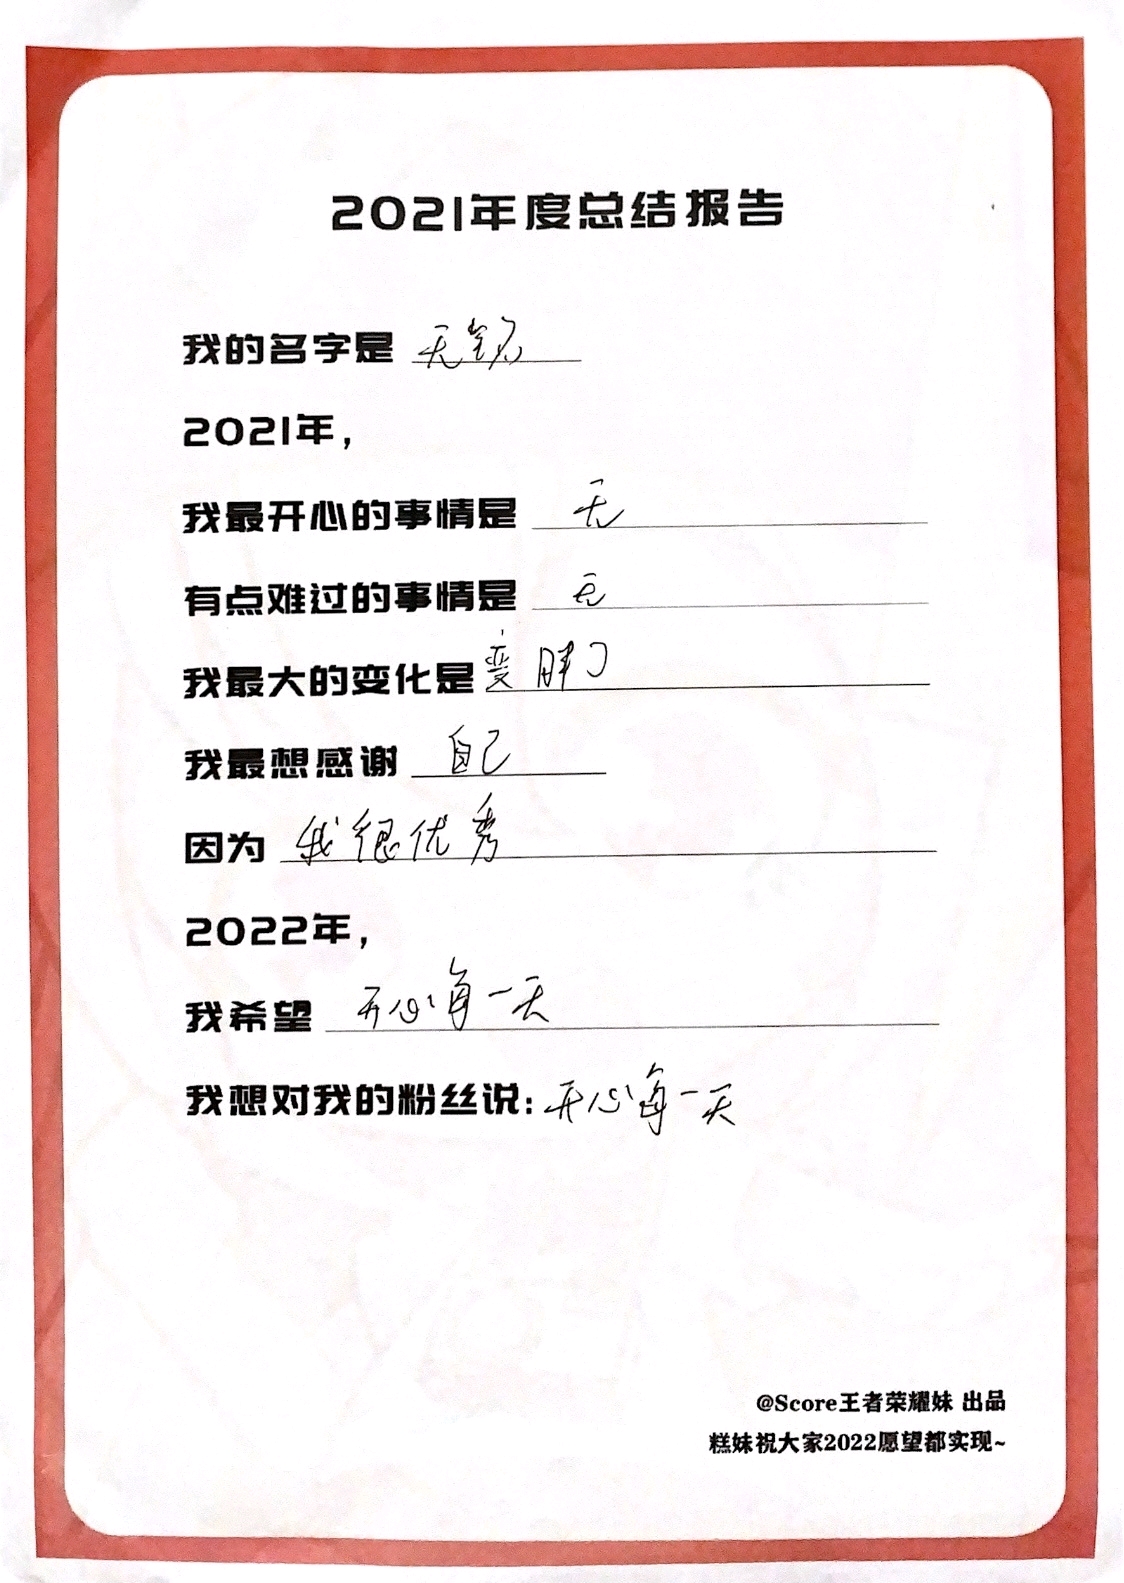 2021年度总结报告
我的名字是 无铭
2021年，
我最开心的事情是 无
有点难过的事情是 无
我最大的变化是 变胖了
我最想感谢 自己
因为 我很优秀
2022年，
我希望 开心每一天
我想对我的粉丝说：开心每一天
@Score王者荣耀妹 出品
糕妹祝大家2022愿望都实现~